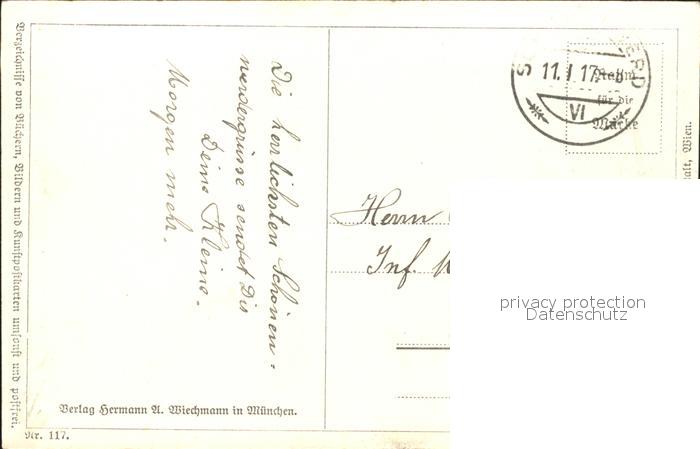 Verzeichnisse von Büchern, Bildern und Kunstpostkarten umsonst und postfrei.
Die herrlichsten Schönen-
nardergrüsse sendet Dir
Deine Kleine.
Morgen mehr.
11. I 17
VI
Raum
für die
Marke
Wien.
Herrn
Inf.
privacy protection
Datenschutz
Verlag Hermann A. Wiechmann in München.
Nr. 117.